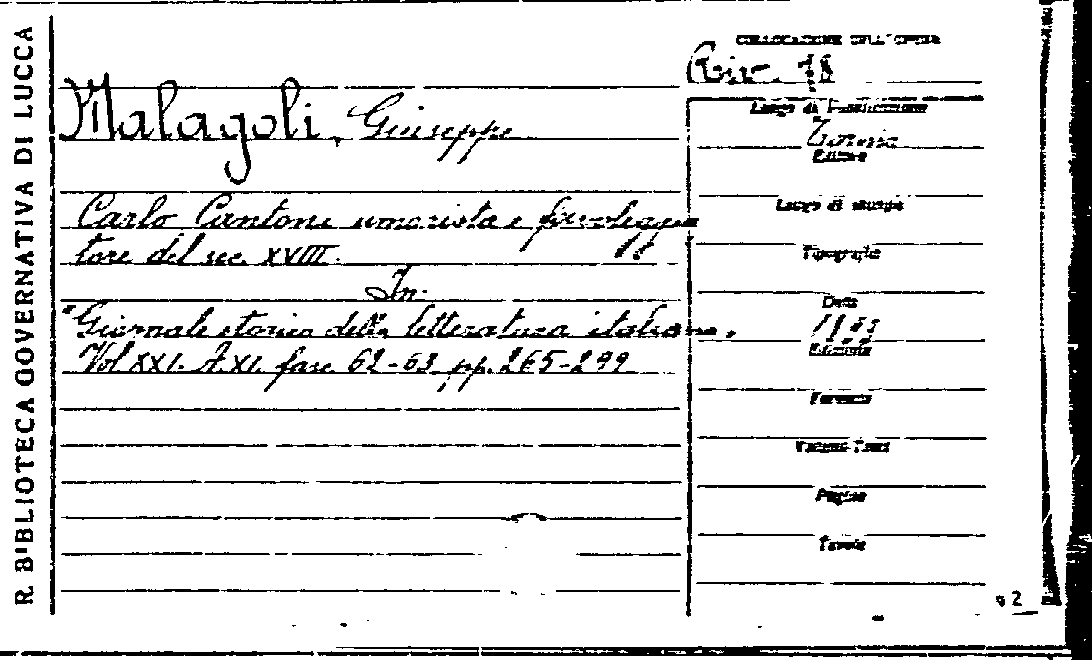 R. BIBLIOTECA GOVERNATIVA DI LUCCA
COLLOCAZIONE DELL'OPERA
Riv. 18
Malagoli, Giuseppe
Carlo Cantoni umorista e favoleggia
tore del sec. XVIII.
In.
"Giornale storico della letteratura italiana.
Vol XXI. A. XI. fasc 62-63 pp. 265-299
Luogo di Pubblicazione
Torino
Editore
Luogo di stampa
Tipografia
Data
1893
Edizione
Formato
Volumi-Tomi
Pagine
Tavole